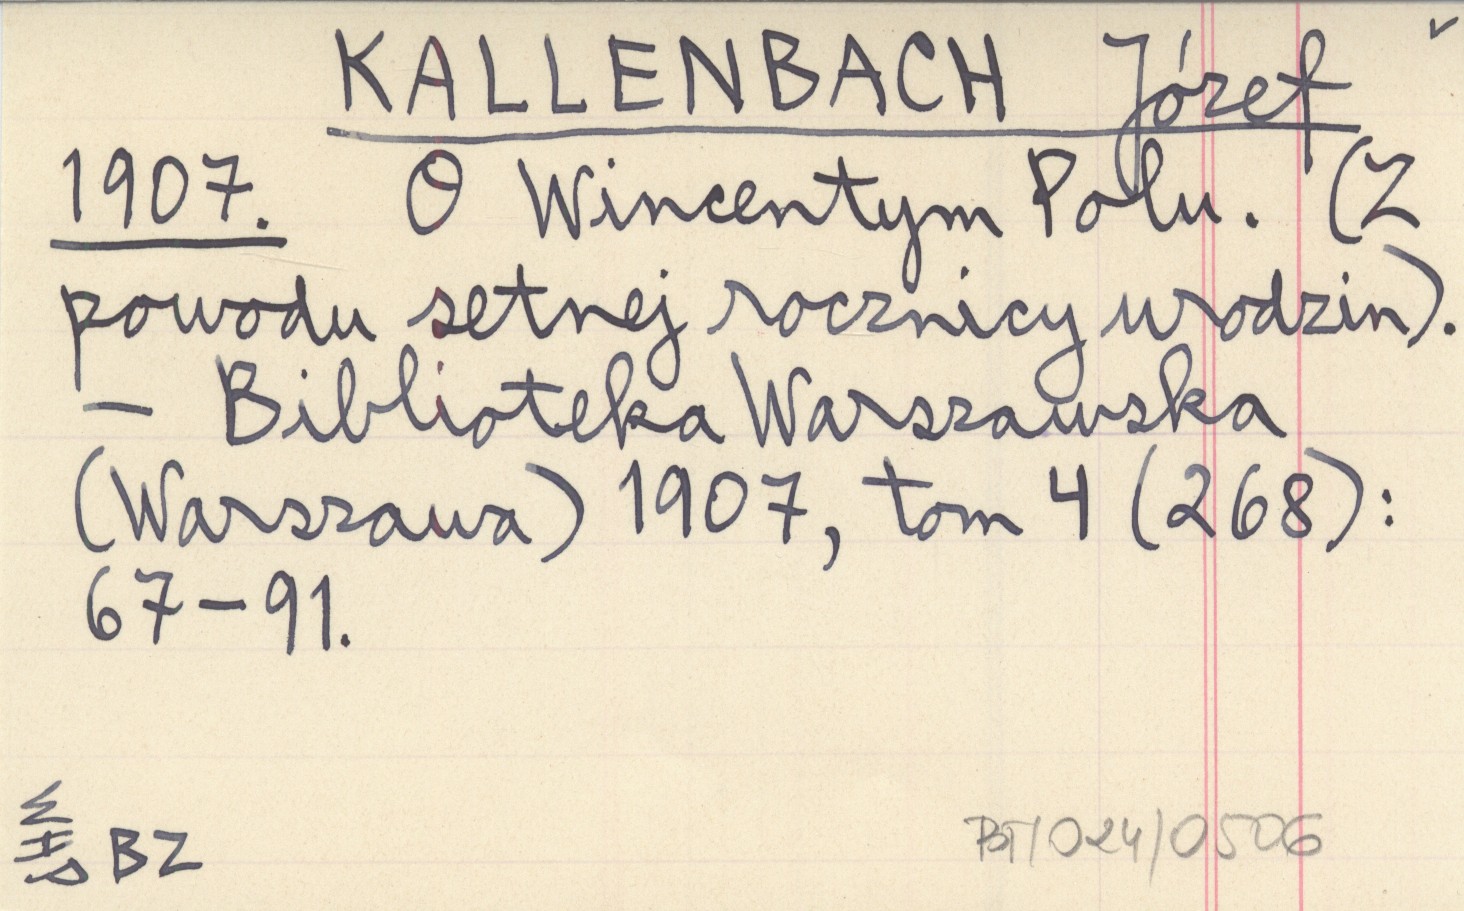 KALLENBACH Józef
1907. O Wincentym Polu. (Z
powodu setnej rocznicy urodzin).
— Biblioteka Warszawska
(Warszawa) 1907, tom 4 (268):
67-91.
WHS BZ
BT/024/0506